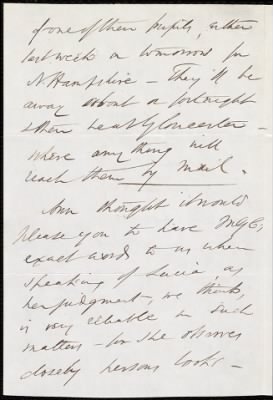 of one of their pupils, either
last week or tomorrow for
N Hampshire - They'll be
away about a fortnight
& then be at Gloucester -
where any thing will
reach them by mail.
Ann thought it would
please you to have
exact words to us when
speaking of Lucia, as
her judgment, we think,
is very reliable in such
matters - for she observes
closely persons looks -